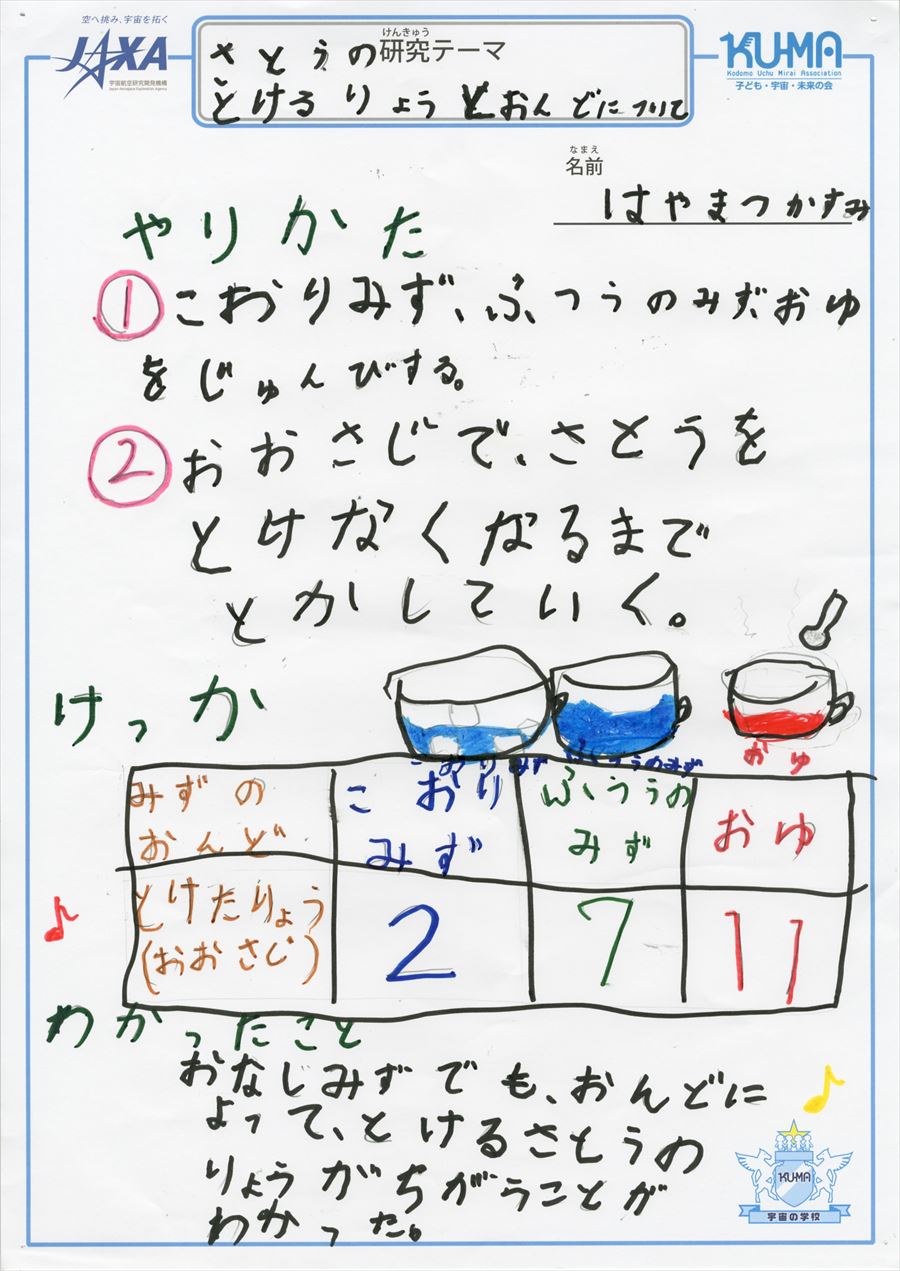 空へ挑み、宇宙を拓く
JAXA
宇宙航空研究開発機構
Japan Aerospace Exploration Agency
けんきゅう
研究テーマ
さとうの
とけるりょうとおんどについて
KU-MA
Kodomo Uchu Mirai Association
子ども・宇宙・未来の会
なまえ
名前
はやまつかすみ
やりかた
①こおりみず、ふつうのみず、おゆ
をじゅんびする。
②おおさじで、さとうを
とけなくなるまで
とかしていく。
けっか
こおりみず ふつうのみず おゆ
みずの おんど こおり みず ふつうの みず おゆ
とけたりょう (おおさじ) 2 7 11
わかったこと
おなじみずでも、おんどに
よって、とけるさとうの
りょうがちがうことが
わかった。
KU-MA
宇宙の学校